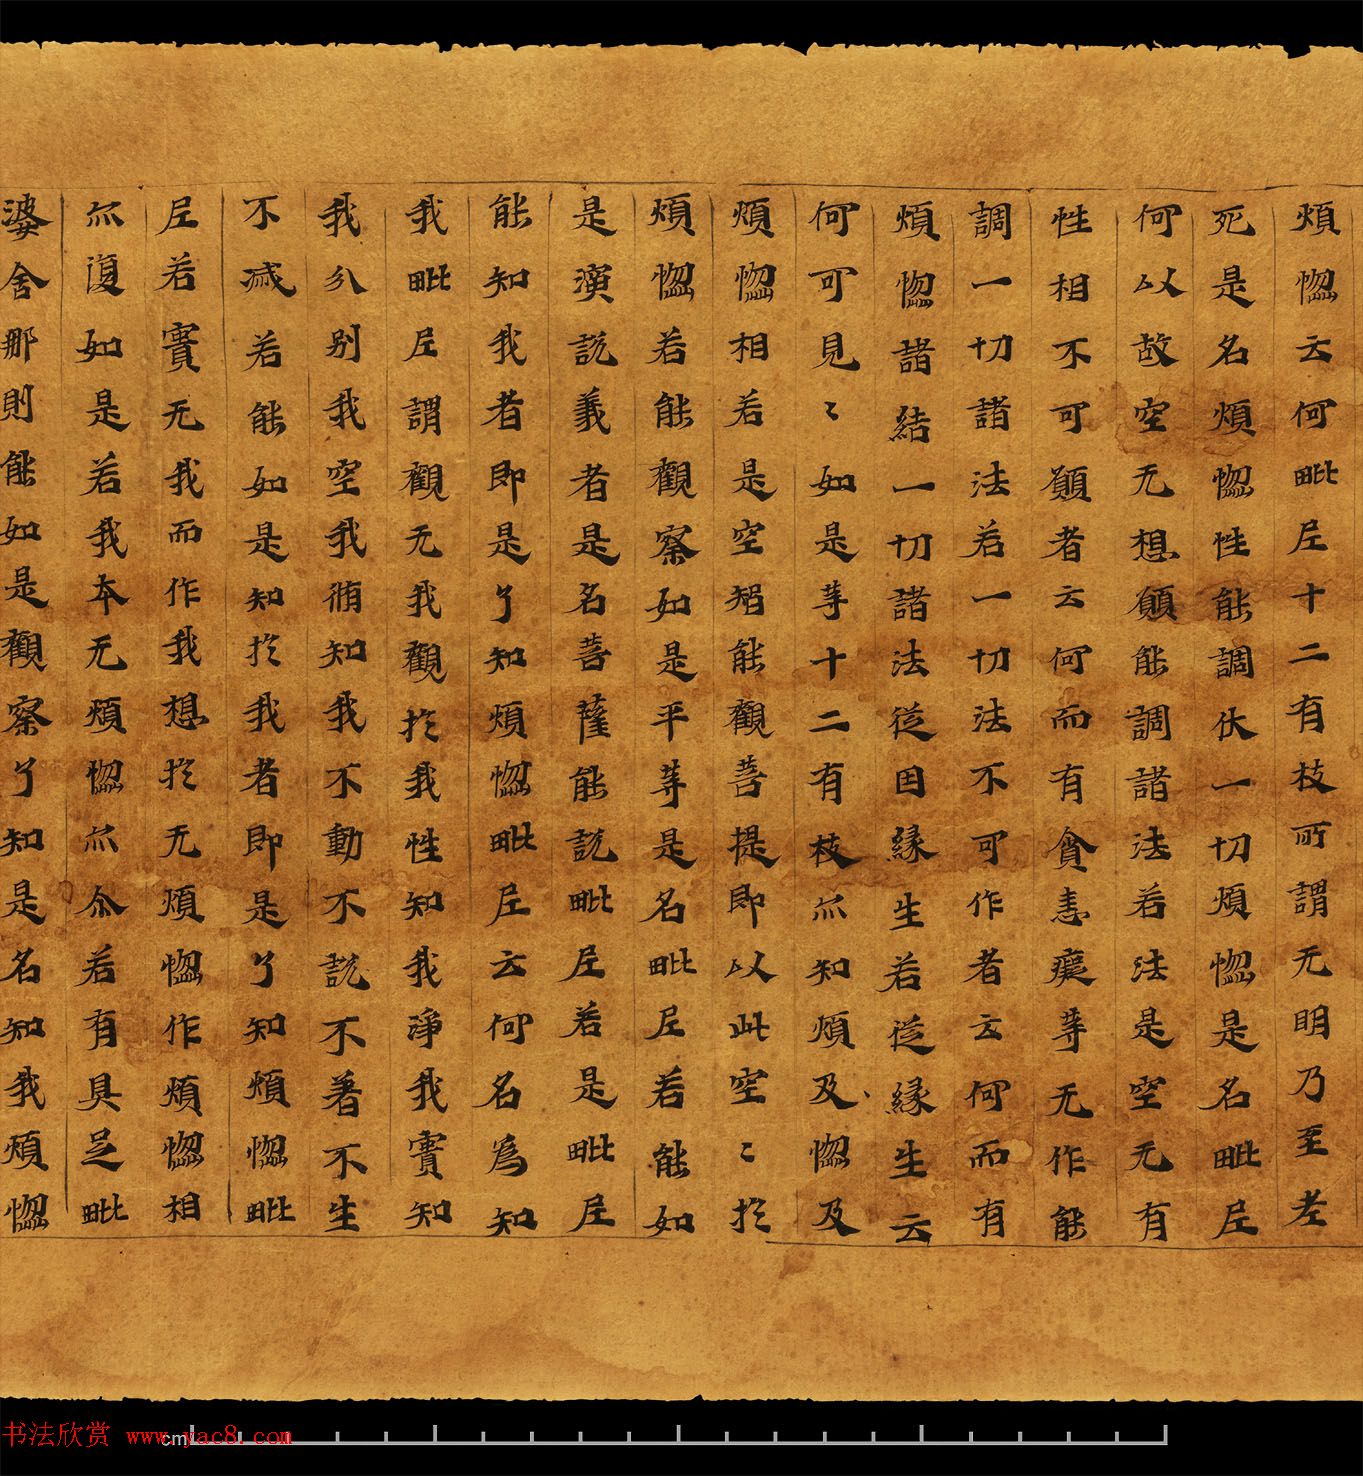 煩惚云何毗尼十二有枝所謂无明乃至老
死是名煩惚性能調伏一切煩惚是名毗尼
何以故空无想願能調諸法若法是空无有
性相不可願者云何而有貪恚癡等无作能
調一切諸法若一切法不可作者云何而有
煩惚諸結一切諸法從因緣生若從緣生云
何可見〻如是等十二有枝亦知煩及惚及
煩惚相若是空智能觀菩提即以此空〻於
煩惚若能觀察如是平等是名毗尼若能如
是演說義者是名菩薩能說毗尼若是毗尼
能知我者即是了知煩惚毗尼云何名為知
我毗尼謂觀无我觀於我性知我淨我實知
我分別我空我脩知我不動不說不著不生
不減若能如是知於我者即是了知煩惚毗
尼若實无我而作我想於无煩惚作煩惚相
亦復如是若我本无煩惚亦尒若有具足毗
婆舍那則能如是觀察了知是名知我煩惚
书法欣赏 www.yac8.com
cm